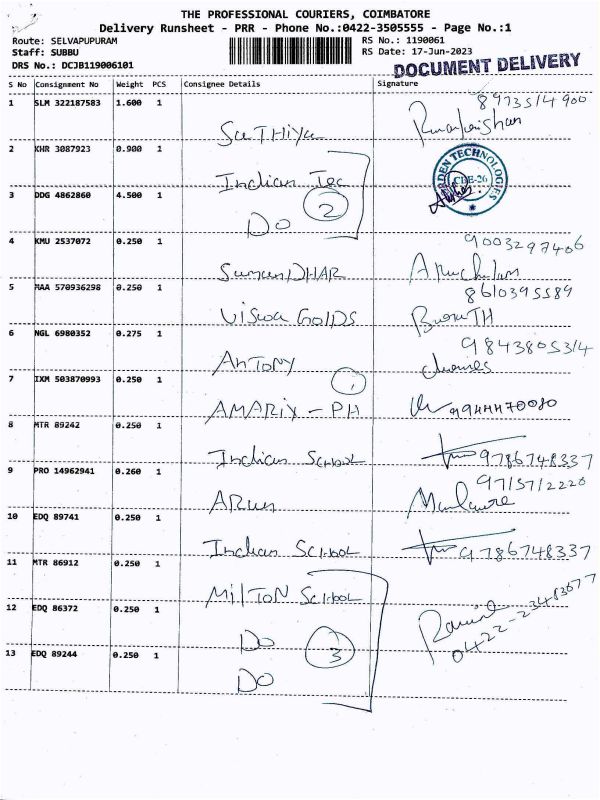 THE PROFESSIONAL COURIERS, COIMBATORE
Delivery Runsheet - PRR - Phone No.:0422-3505555 - Page No.:1
Route: SELVAPUPURAM
RS No.: 1190061
Staff: SUBBU
RS Date: 17-Jun-2023
DRS No.: DCJB119006101
DOCUMENT DELIVERY
S No Consignment No Weight PCS Consignee Details Signature
1 SLM 322187583 1.600 1 SaTHiya 8973514900
2 KHR 3087923 0.900 1 Indian Tec
TECHNOLOGIES
CBE-26
3 DDG 4862860 4.500 1 DO 2
4 KMU 2537072 0.250 1 SumunDHAR 9003297406
5 MAA 570936298 0.250 1 Viswa GolDS 8610395589
6 NGL 6980352 0.275 1 ANTONY 9843805314
7 IXM 503870993 0.250 1 AMARIX - PH 1 9944470080
8 MTR 89242 0.250 1 Indian School 9786748337
9 PRO 14962941 0.260 1 ARun 9715712220
10 EDQ 89741 0.250 1 Indian School 9786748337
11 MTR 86912 0.250 1 MilTON School
12 EDQ 86372 0.250 1 Do 3 0422-23483677
13 EDQ 89244 0.250 1 DO